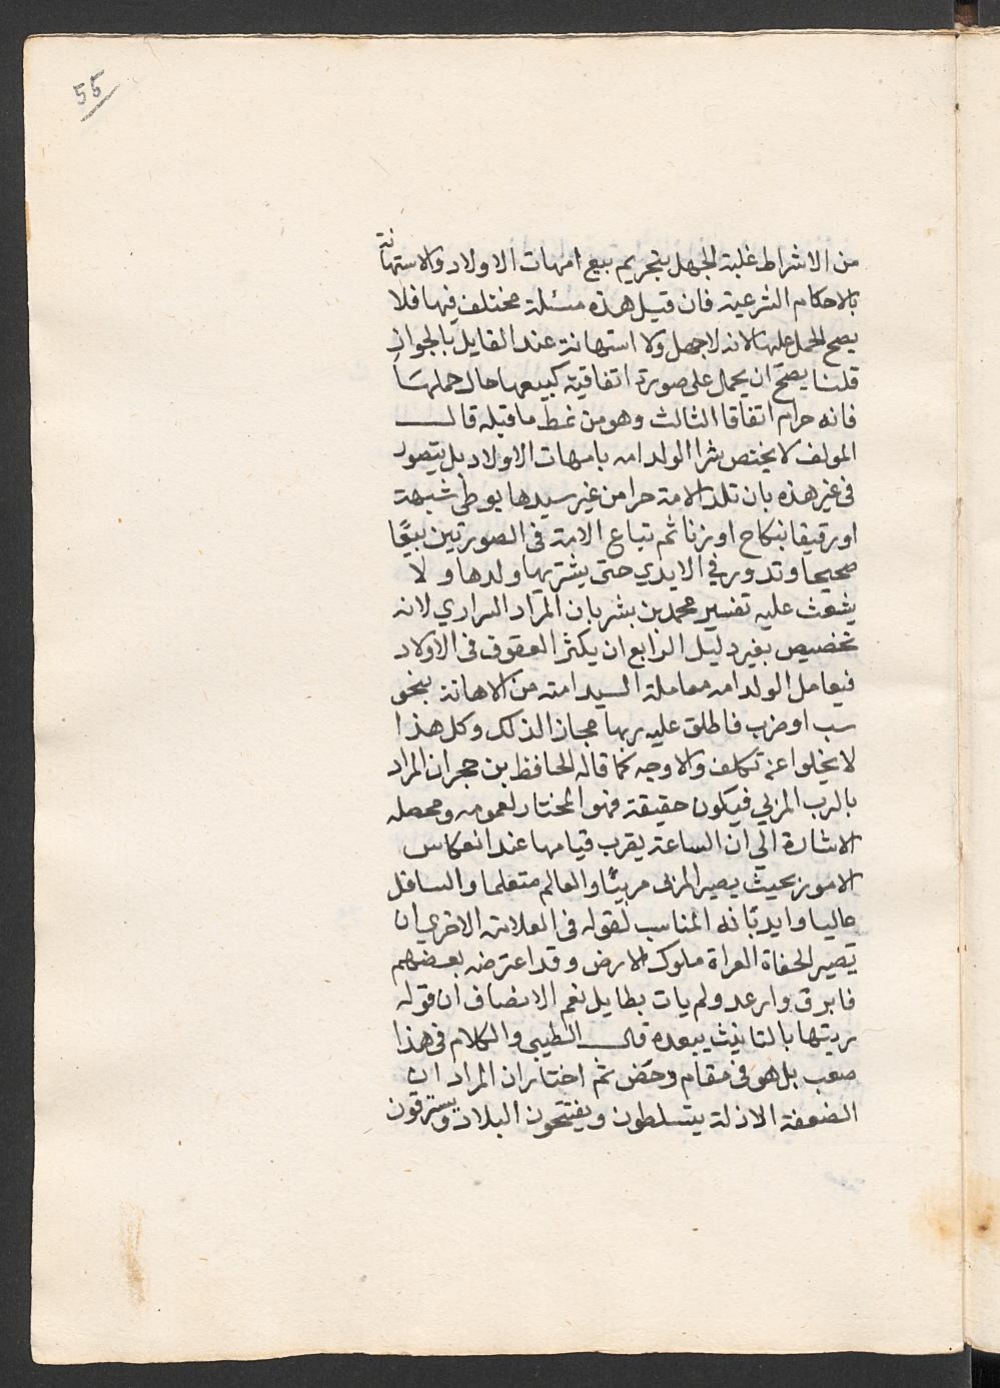 55
من الاشراط غلبة الجهل بتحريم بيع امهات الاولاد والاستهانة
بالاحكام الشرعية فان قيل هذه مسئلة مختلف فيها فلا
يصح الحمل عليها لانه لا جهل ولا استهانة عند القايل بالجواز
قلنا يصح ان يحمل على صورة اتفاقية كبيعها حال حملها
فانه حرام اتفاقا الثالث وهو من نمط ما قبله قال
المولف لا يختص شرا الولد امه بامهات الاولاد بل يتصور
في غير هذه بان تلد الامة حرا من غير سيدها بوطى شبهة
او رقيقا بنكاح او زنا ثم تباع الامة في الصورتين بيعًا
صحيحا وتدور في الايدي حتى يشتريها ولدها ولا
يشعث عليه تفسير محمد بن بشر بان المراد السراري لانه
تخصيص بغير دليل الرابع ان يكثر العقوق في الاولاد
فيعامل الولد امه معاملة السيد امته من الاهانة بنحو
سب او ضرب فاطلق عليه ربها مجازا لذلك وكل هذا
لا يخلوا عن تكلف والاوجه كما قاله الحافظ بن حجر ان المراد
بالرب المربي فيكون حقيقة فهو المختار لعمومه ومحصله
الاشارة الي ان الساعة يقرب قيامها عند انعكاس
الامور بحيث يصير المربى مربيًا والعالم متعلما والسافل
عاليا وايد بانه المناسب لقوله في العلامة الاخرى ان
تصير الحفاة العراة ملوك الارض وقد اعترضه بعضهم
فابرق وارعد ولم يات بطايل نعم الانصاف ان قوله
ربتها بالتانيث يبعده قال الطيبى والكلام في هذا
صعب بل هو في مقام دحض ثم اختار ان المراد ان
الضعفة الاذلة يتسلطون ويفتتحون البلاد ويسترقون